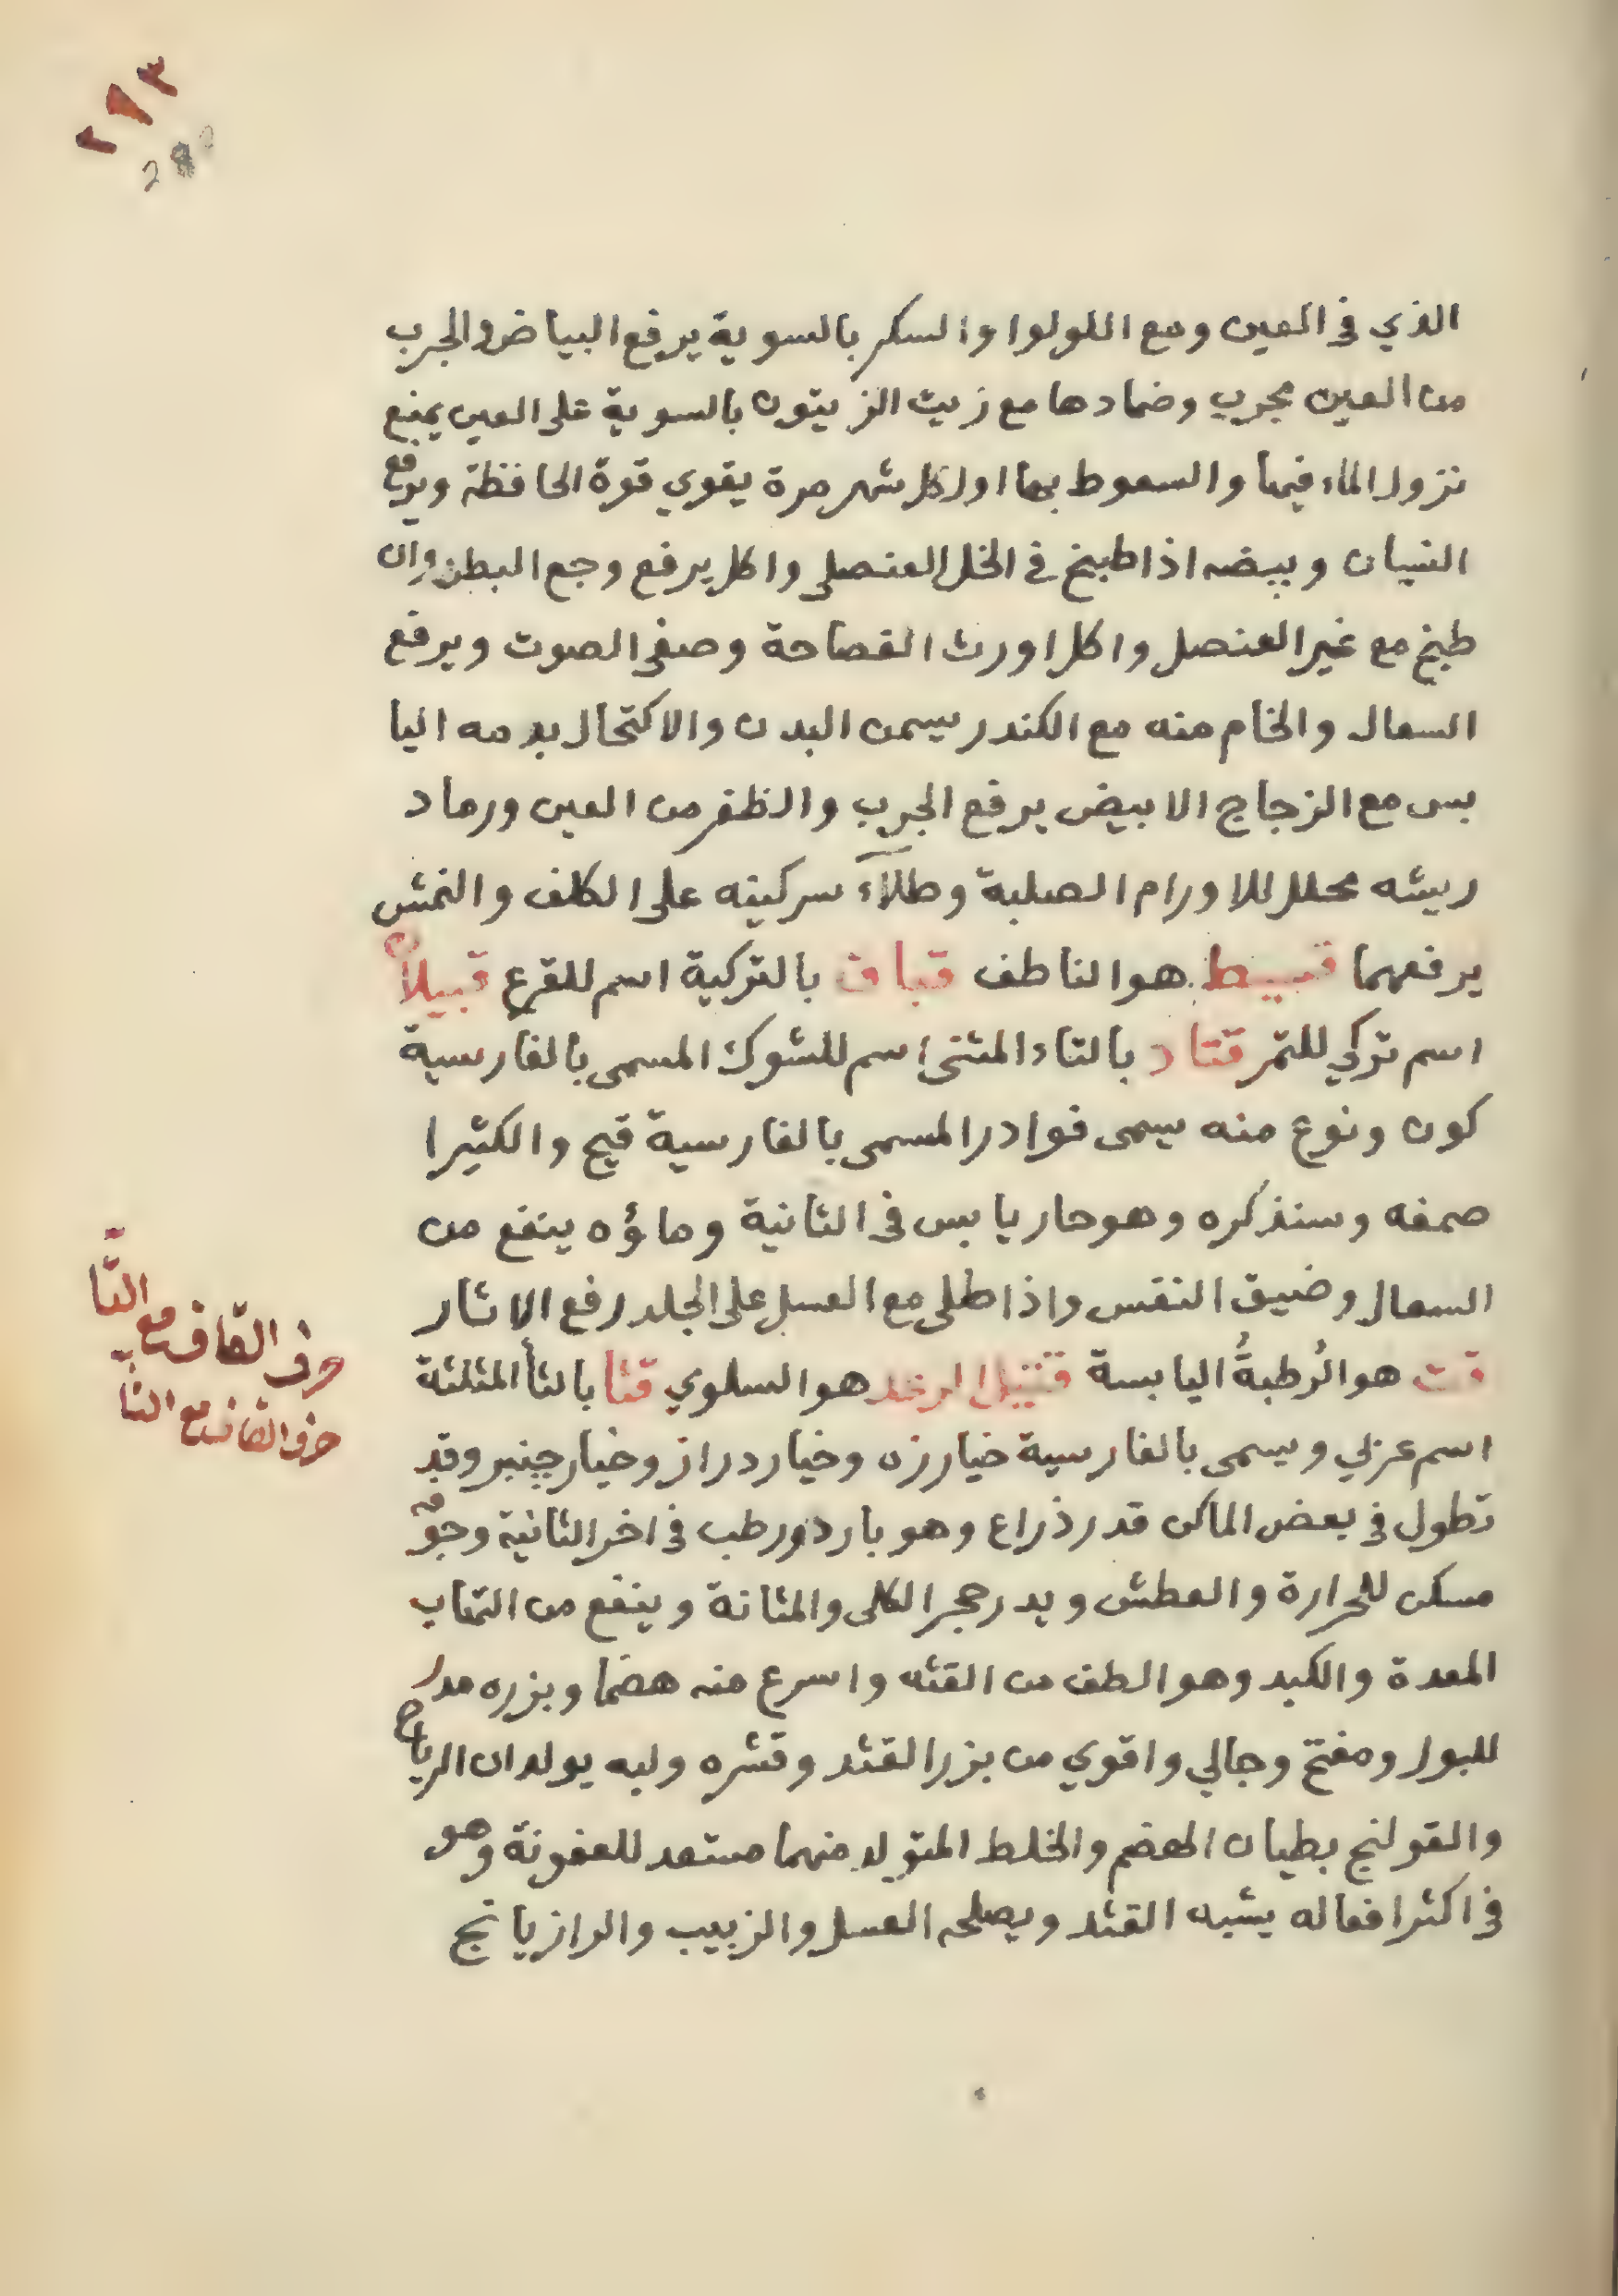 ٢٩٣
الذي في العين ومع اللولوا والسكر بالسوية يرفع البياض والجرب
من العين مجرب وضمادها مع زيت الزيتون بالسوية على العين يمنع
نزول الماء فيها والسعوط بها اول كل شهر مرة يقوي قوة الحافظة ويرفع
النسيان وبيضه اذا طبخ في الخل العنصلي واكل يرفع وجع البطن وان
طبخ مع غير العنصل واكل اورث الفصاحة وصفى الصوت ويرفع
السعال والخام منه مع الكندر يسمن البدن والاكتحال بدمه اليا
بس مع الزجاج الابيض يرفع الجرب والظفر من العين ورماد
ريشه محلل للاورام الصلبة وطلاء سركينه على الكلف والنمش
يرفعهما قبيط هو الناطف قباق بالتركية اسم للقرع قبيلا
اسم تركي للتمر قتاد بالتاء المثنى اسم للشوك المسمى بالفارسية
كون ونوع منه يسمى فوادر المسمى بالفارسية قيح والكثيرا
صمغه وسنذكره وهو حار يابس في الثانية وماؤه ينفع من
السعال وضيق النفس واذا طلى مع العسل على الجلد رفع الاثار
قت هو الرُطبةُ اليابسة قتيل الرعد هو السلوي قثا بالثأ المثلثة
اسم عربي ويسمى بالفارسية خيارزه وخيار دراز وخيار چنبر وقد
تطول في بعض الماكن قدر ذراع وهو بارد ورطب في اخر الثانية وجوفه
مسكن للحرارة والعطش ويدر حجر الكلى والمثانة وينفع من التهاب
المعدة والكبد وهو الطف من القثه واسرع منه هضما وبزره مدر
للبول ومفتح وجالي واقوي من بزر القثد وقشره ولبه يولدان الرياح
والقولنج بطيان الهضم والخلط المتولد منهما مستعد للعفونة وهو
في اكثر افعاله يشبه القثد ويصلحه العسل والزبيب والرازيانج
حرف القاف مع التّا
حرف القاف مع الثا